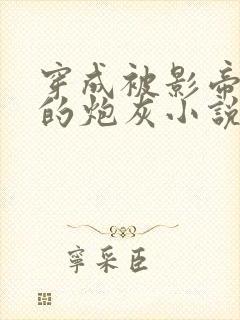 穿成被影帝
的炮灰小説
寧采臣